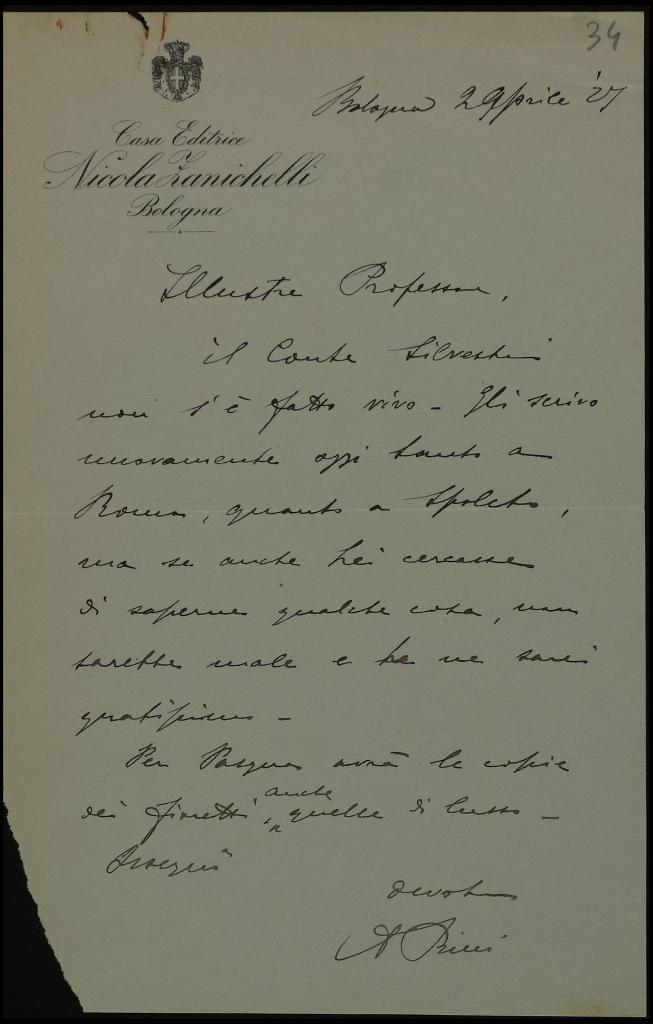 34
Bologna 2 Aprile '27
Casa Editrice
Nicola Zanichelli
Bologna
Illustre Professore,
il Conte Silvestri
non s'è fatto vivo - Gli scrivo
nuovamente oggi tanto a
Roma, quanto a Spoleto,
ma se anche Lei cercasse
di saperne qualche cosa, non
sarebbe male e le ne sarei
gratissimo -
Per Pasqua avrà le copie
dei fioretti, anche quelle di lusso -
Ossequi
devoto